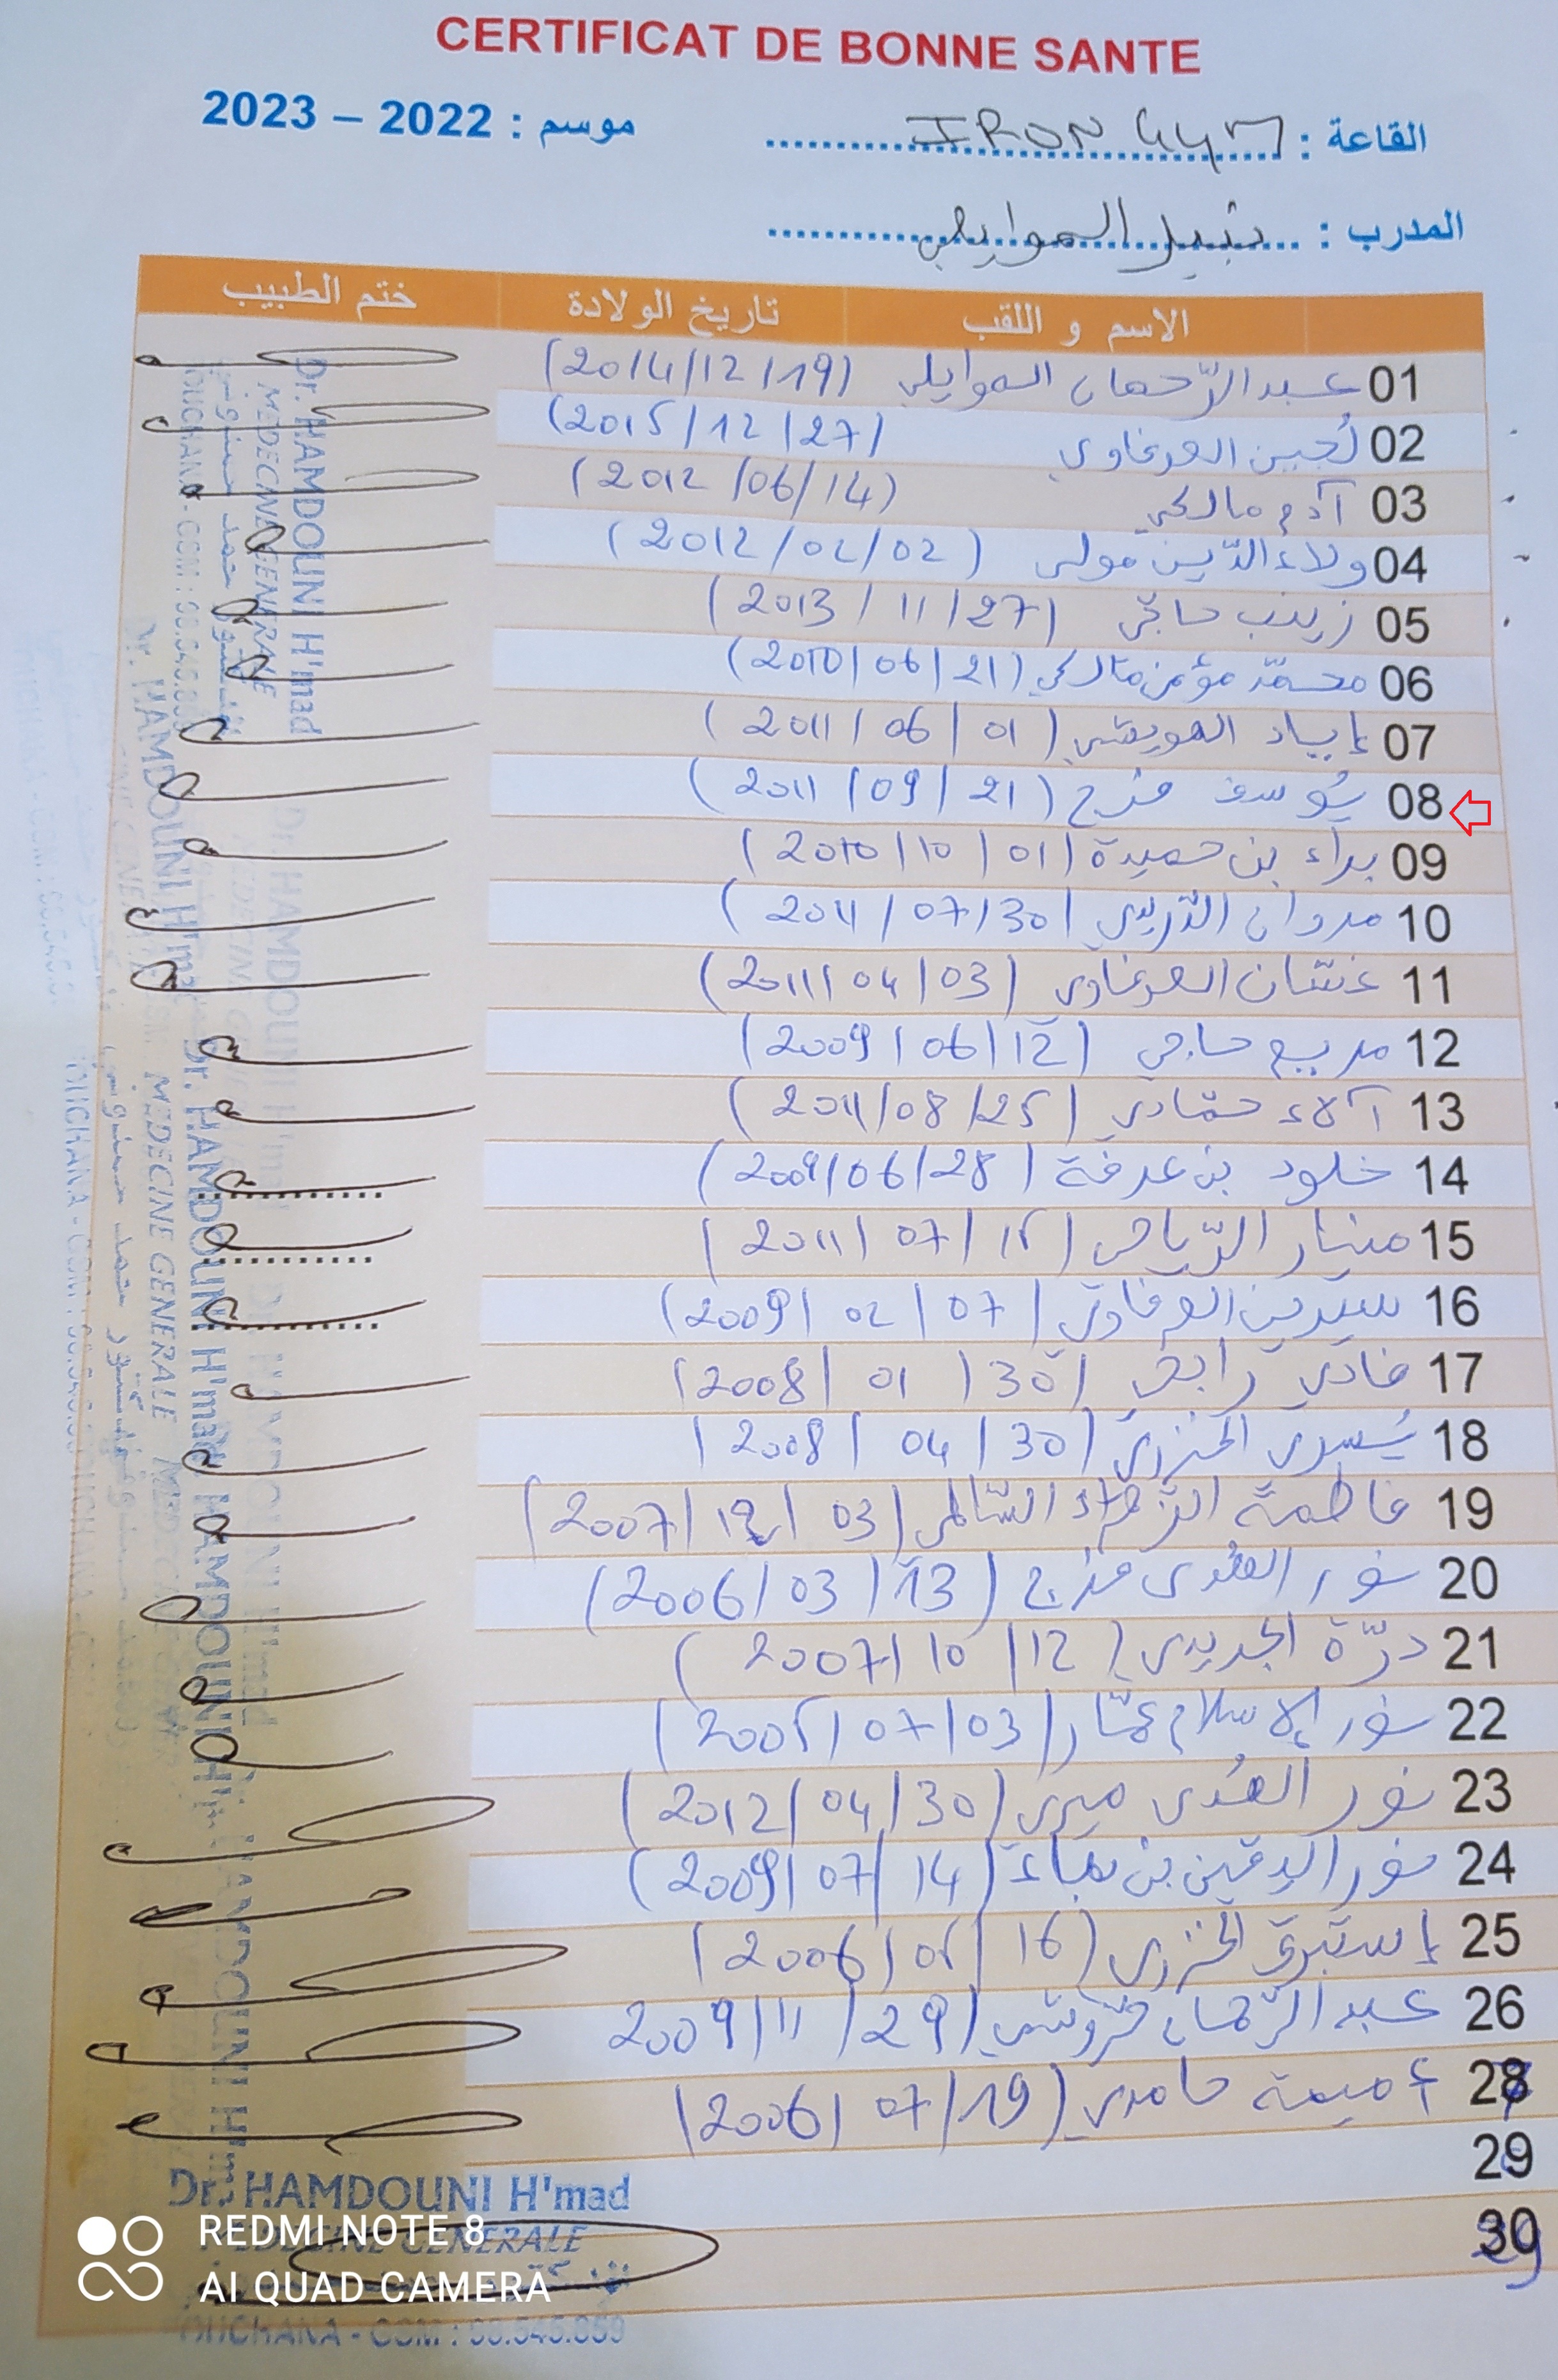 CERTIFICAT DE BONNE SANTE
القاعة : IRON GYM موسم : 2022 – 2023
المدرب : نبيل الموايلي
الاسم و اللقب تاريخ الولادة ختم الطبيب
01 عبد الرّحمان الموايلي (2014/12/19)
02 لُجين العرفاوي (2015/12/27)
03 آدم مالكي (2012/06/14)
04 ولاء الدّين مولى (2012/02/02)
05 زينب حاجّي (2013/11/27)
06 محمّد مؤمن مالكي (2010/06/21)
07 إياد العويشي (2011/06/01)
08 يُوسف فرج (2011/09/21)
09 براء بن حميدة (2010/10/01)
10 مروان الدّريدي (2011/07/30)
11 غسّان العرفاوي (2011/04/03)
12 مريم حاجي (2009/06/12)
13 آلاء حمّادي (2011/08/25)
14 خلود بن عرفة (2009/06/28)
15 منار الرّياحي (2011/07/15)
16 سيرين العرفاوي (2009/02/07)
17 فادي رابحي (2008/01/30)
18 يُسرى الخنزري (2008/04/30)
19 فاطمة الزّهراء السّالمي (2007/12/03)
20 نور الهُدى فرج (2006/03/13)
21 درّة الجديدي (2007/10/12)
22 نور الإسلام عمّار (2005/07/03)
23 نور الهُدى ميري (2012/04/30)
24 نور اليقين بن (2009/07/14)
25 إستبرق الخنزري (2006/05/16)
26 عبد الرّحمان (2009/11/29
28 أميمة حامدي (2006/07/19)
29
30
Dr. HAMDOUNI H'mad
MEDECINE GENERALE
REDMI NOTE 8
AI QUAD CAMERA